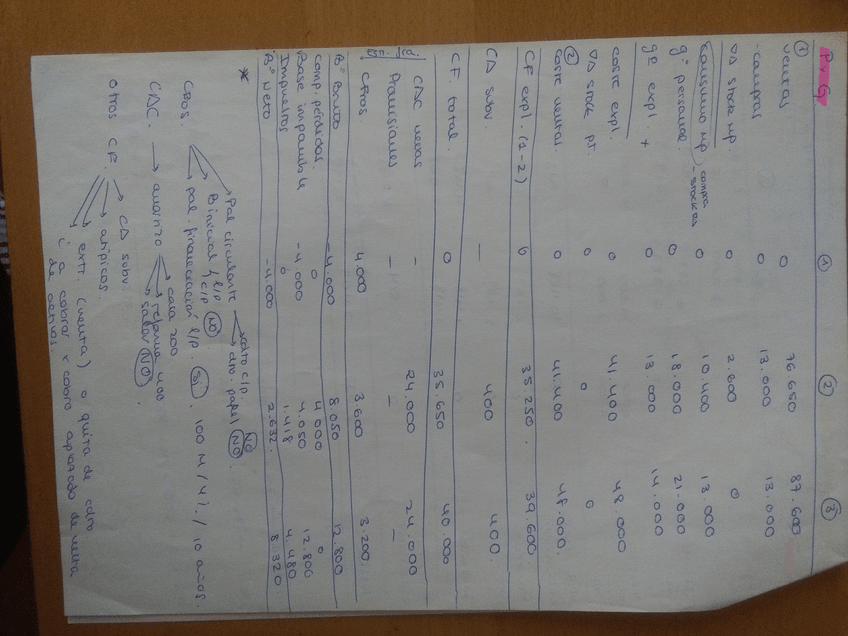 P y G ① ② ③
① ventas 0 76 650 87.600
- compras 0 13.000 13.000
▽△ stock mp. 0 2.600 0
consumo mp 0 10.400 13 000
compra - stock
gº personal 0 18.000 21.000
gº expl. + 0 13.000 14.000
coste expl. 0 41.400 48.000
▽△ stock pt. 0 0 0
② coste ventas. 0 41.400 48.000.
CF expl. (1-2) 0 35 250. 39 600
CA subv. — 400 400.
CF. total. 0 35.650 40.000
CAC nuevas - 24.000 24.000
Provisiones — — —
CFROS. 4.000 3 600 3.200
Bº Bruto -4.000 8.050 12.800
comp. pérdidas. 0 4 000 0
Base imponible -4.000 4.050 12.800
Impuestos 0 1.418 4.480
Bº Neto -4.000 2.632. 8 320
*
Pal circulante cdto c/p. NO
dto. papel NO
B inicial y l/p c/p NO
CFROS pal. financiación l/p. SI. 100 M / 4%. / 10 años.
CAC. → amortizo cada 200
reforma 400
saldar NO.
otros CF. CA subv.
atípicos.
ext. (venta) o quita de cdto
a cobrar x cobro aplazado de venta
de activos.